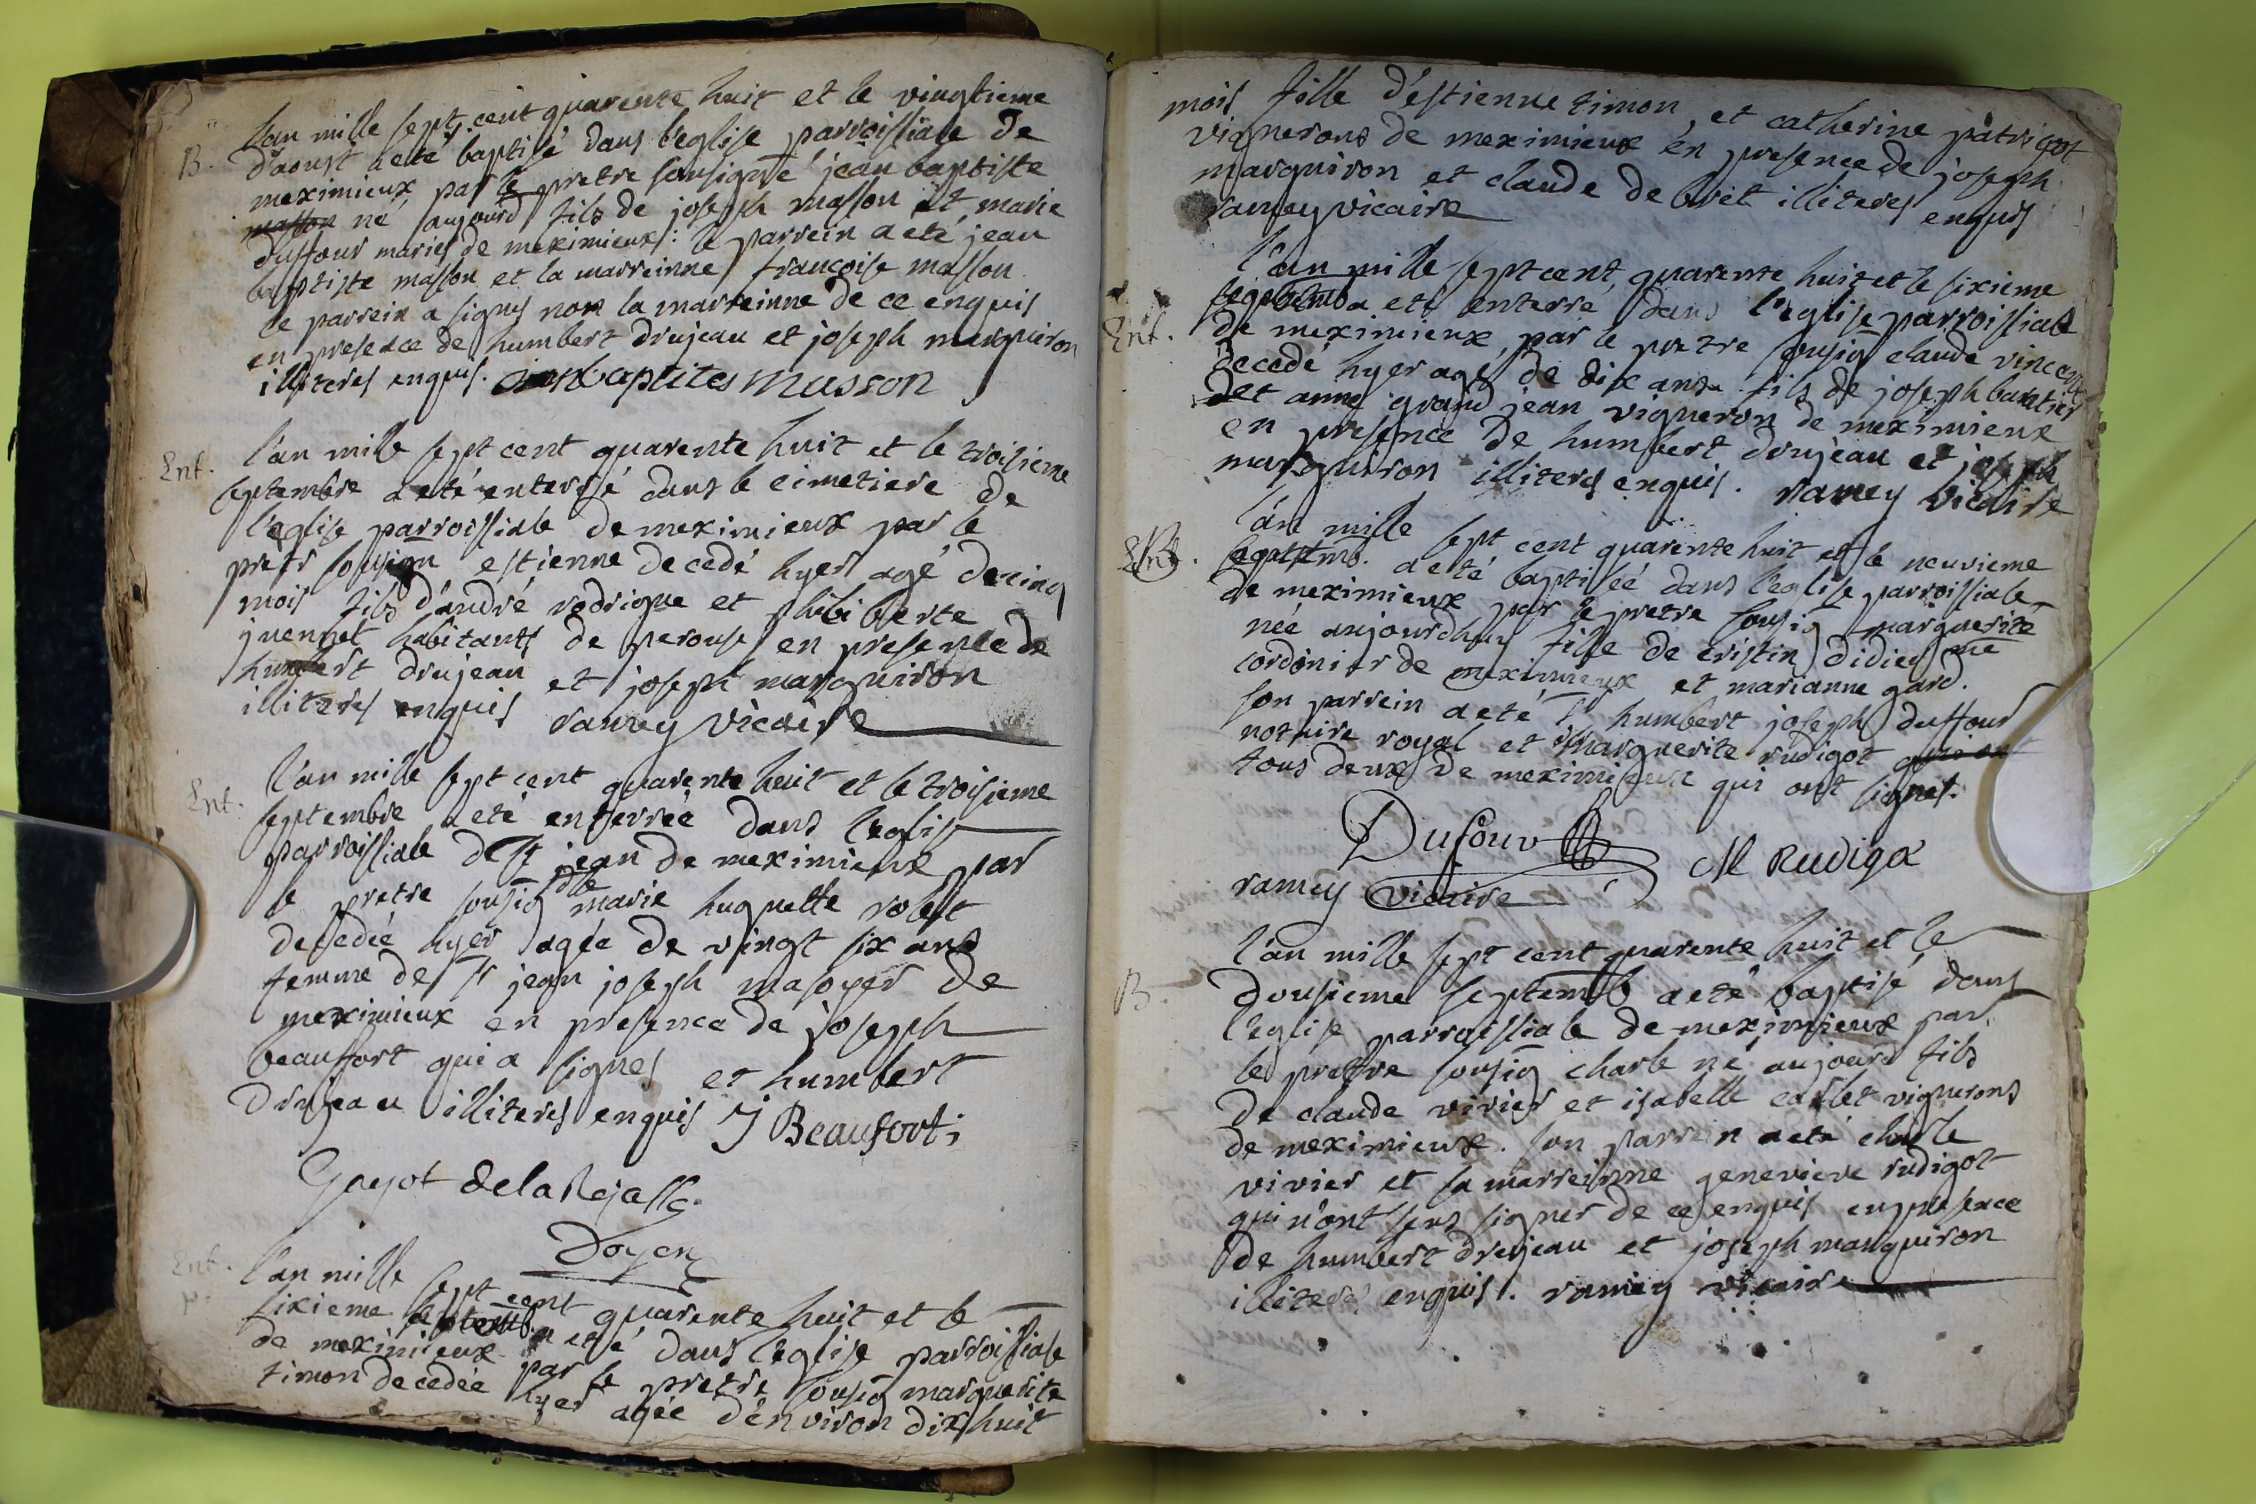 B.
l'an mille sept cent quarente huit et le vingtieme
d'aoust a eté baptisé dans l'eglise parroissiale de
meximieux par le pretre sousigné jean baptiste
masson né aujourd fils de joseph masson et marie
duffour mariés de meximieux : le parrein a eté jean
baptiste masson et la marreinne françoise masson
le parrein a signés non la marreinne de ce enquis
en presence de humbert drujeau et joseph marguiron
illiterés enquis. Jean baptites masson
Ent.
l'an mille sept cent quarente huit et le troisieme
septembre a eté enterré dans le cimetiere de
l'eglise parroissiale de meximieux par le
pretr sousign estienne decedé hyer agé de cinq
mois fils d'andré rodrigue et philiberte
juennet habitants de perouse en presence de
humbert drujeau et joseph marguiron
illiterés enquis ramey vicaire
Ent.
l'an mille sept cent quarente huit et le troisieme
septembre a eté enterrée dans l'eglise
parroissiale de st jean de meximieux par
le pretre sousig dlle marie huguette robert
decedée hyer agée de vingt six ans
femme de sr jean joseph masoyer de
meximieux en presence de joseph
beauffort qui a signés et humbert
drujeau illiterés enquis J Beaufort
Guyot de la
Doyen
Ent.
l'an mille sept cent quarente huit et le
sixieme septemb. a eté dans l'eglise parroissiale
de meximieux par le pretre sousig marguerite
timon decedée hyer agée d'environ dix huit
mois fille d'estienne timon, et catherine patrigot
vignerons de meximieux en presence de joseph
marguiron et claude de bret illiterés enquis
ramey vicaire
Ent.
l'an mille sept cent quarente huit et le sixieme
septemb a eté enterré dans l'eglise parroissiale
de meximieux, par le pretre sousig claude vincent
decedé hyer agé de dix ans fils de joseph
et anne grand jean vigneron de meximieux
en presence de humbert drujeau et joseph
marguiron illiterés enquis. ramey vicaire
B.
l'an mille sept cent quarente huit et le neuvieme
septemb. a eté baptisée dans l'eglise parroissiale
de meximieux par le pretre sousig marguerite
née aujourdhuy fille de cristin didieu me
cordonier de meximieux et marianne gard.
son parrein a eté sr humbert joseph duffour
notaire royal et marguerite rudigot qui ont
tous deux de meximieux qui ont signés.
Dufour M Rudigo
ramey vicaire
B.
l'an mille sept cent quarente huit et le
dousieme septemb a eté baptisé dans
l'eglise parroissiale de meximieux par
le pretre sousig charle né aujourd fils
de claude vivier et isabelle carlet vignerons
de meximieux. son parrein a eté charle
vivier et sa marreinne genevieve rudigot
qui n'ont seus signer de ce enquis en presence
de humbert drujeau et joseph marguiron
illiterés enquis. ramey vicaire